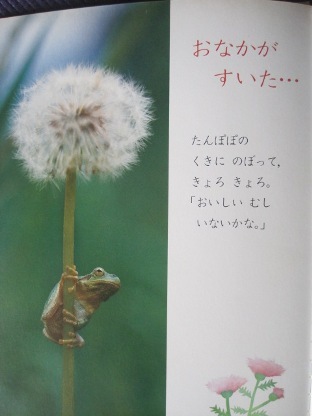 おなかが
すいた…
たんぽぽの
くきに のぼって,
きょろ きょろ。
「おいしい むし
いないかな。」